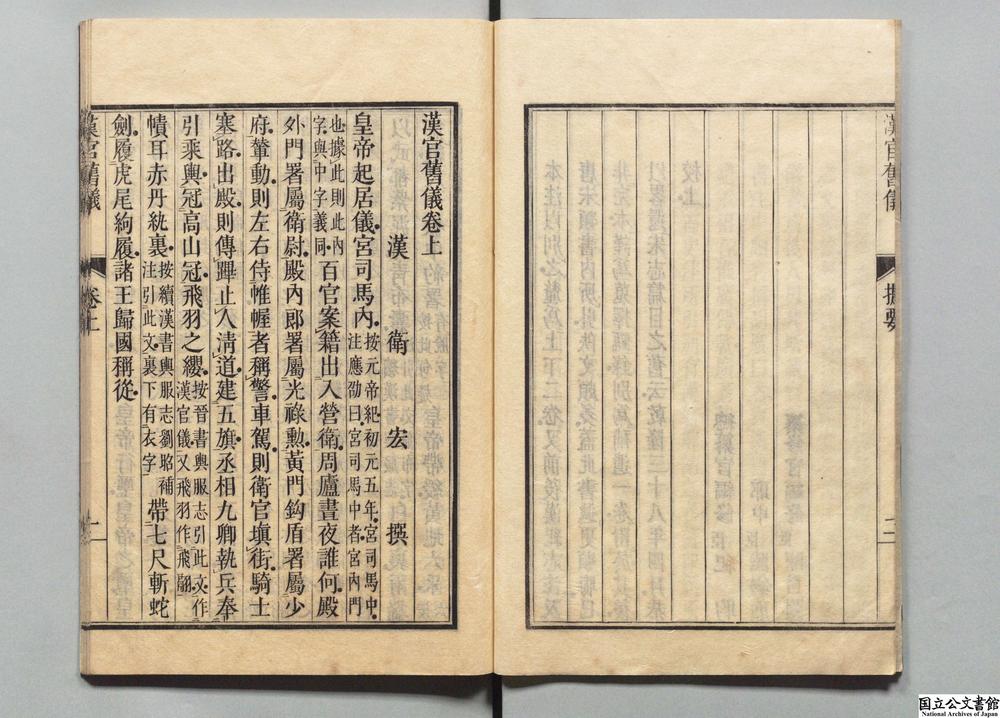 漢官舊儀
提要
二
漢官舊儀卷上
漢 衛 宏 撰
皇帝起居儀宮司馬內按元帝紀初元五年宮司馬中注應劭曰宮司馬中者宮內門
也據此則此內字與中字義同百官案籍出入營衛周廬晝夜誰何殿
外門署屬衛尉殿內郎署屬光祿勳黃門鉤盾署屬少
府輦動則左右侍帷幄者稱警車駕則衛官塡街騎士
塞路出殿則傳蹕止人淸道建五旗丞相九卿執兵奉
引乘輿冠高山冠飛羽之纓按晉書輿服志引此文作漢官儀又飛羽作飛翮
幘耳赤丹紈裏按續漢書輿服志劉昭補注引此文裏下有衣字帶七尺斬蛇
劍履虎尾絇履諸王歸國稱從
漢官舊儀
卷上
一
国立公文書館
National Archives of Japan